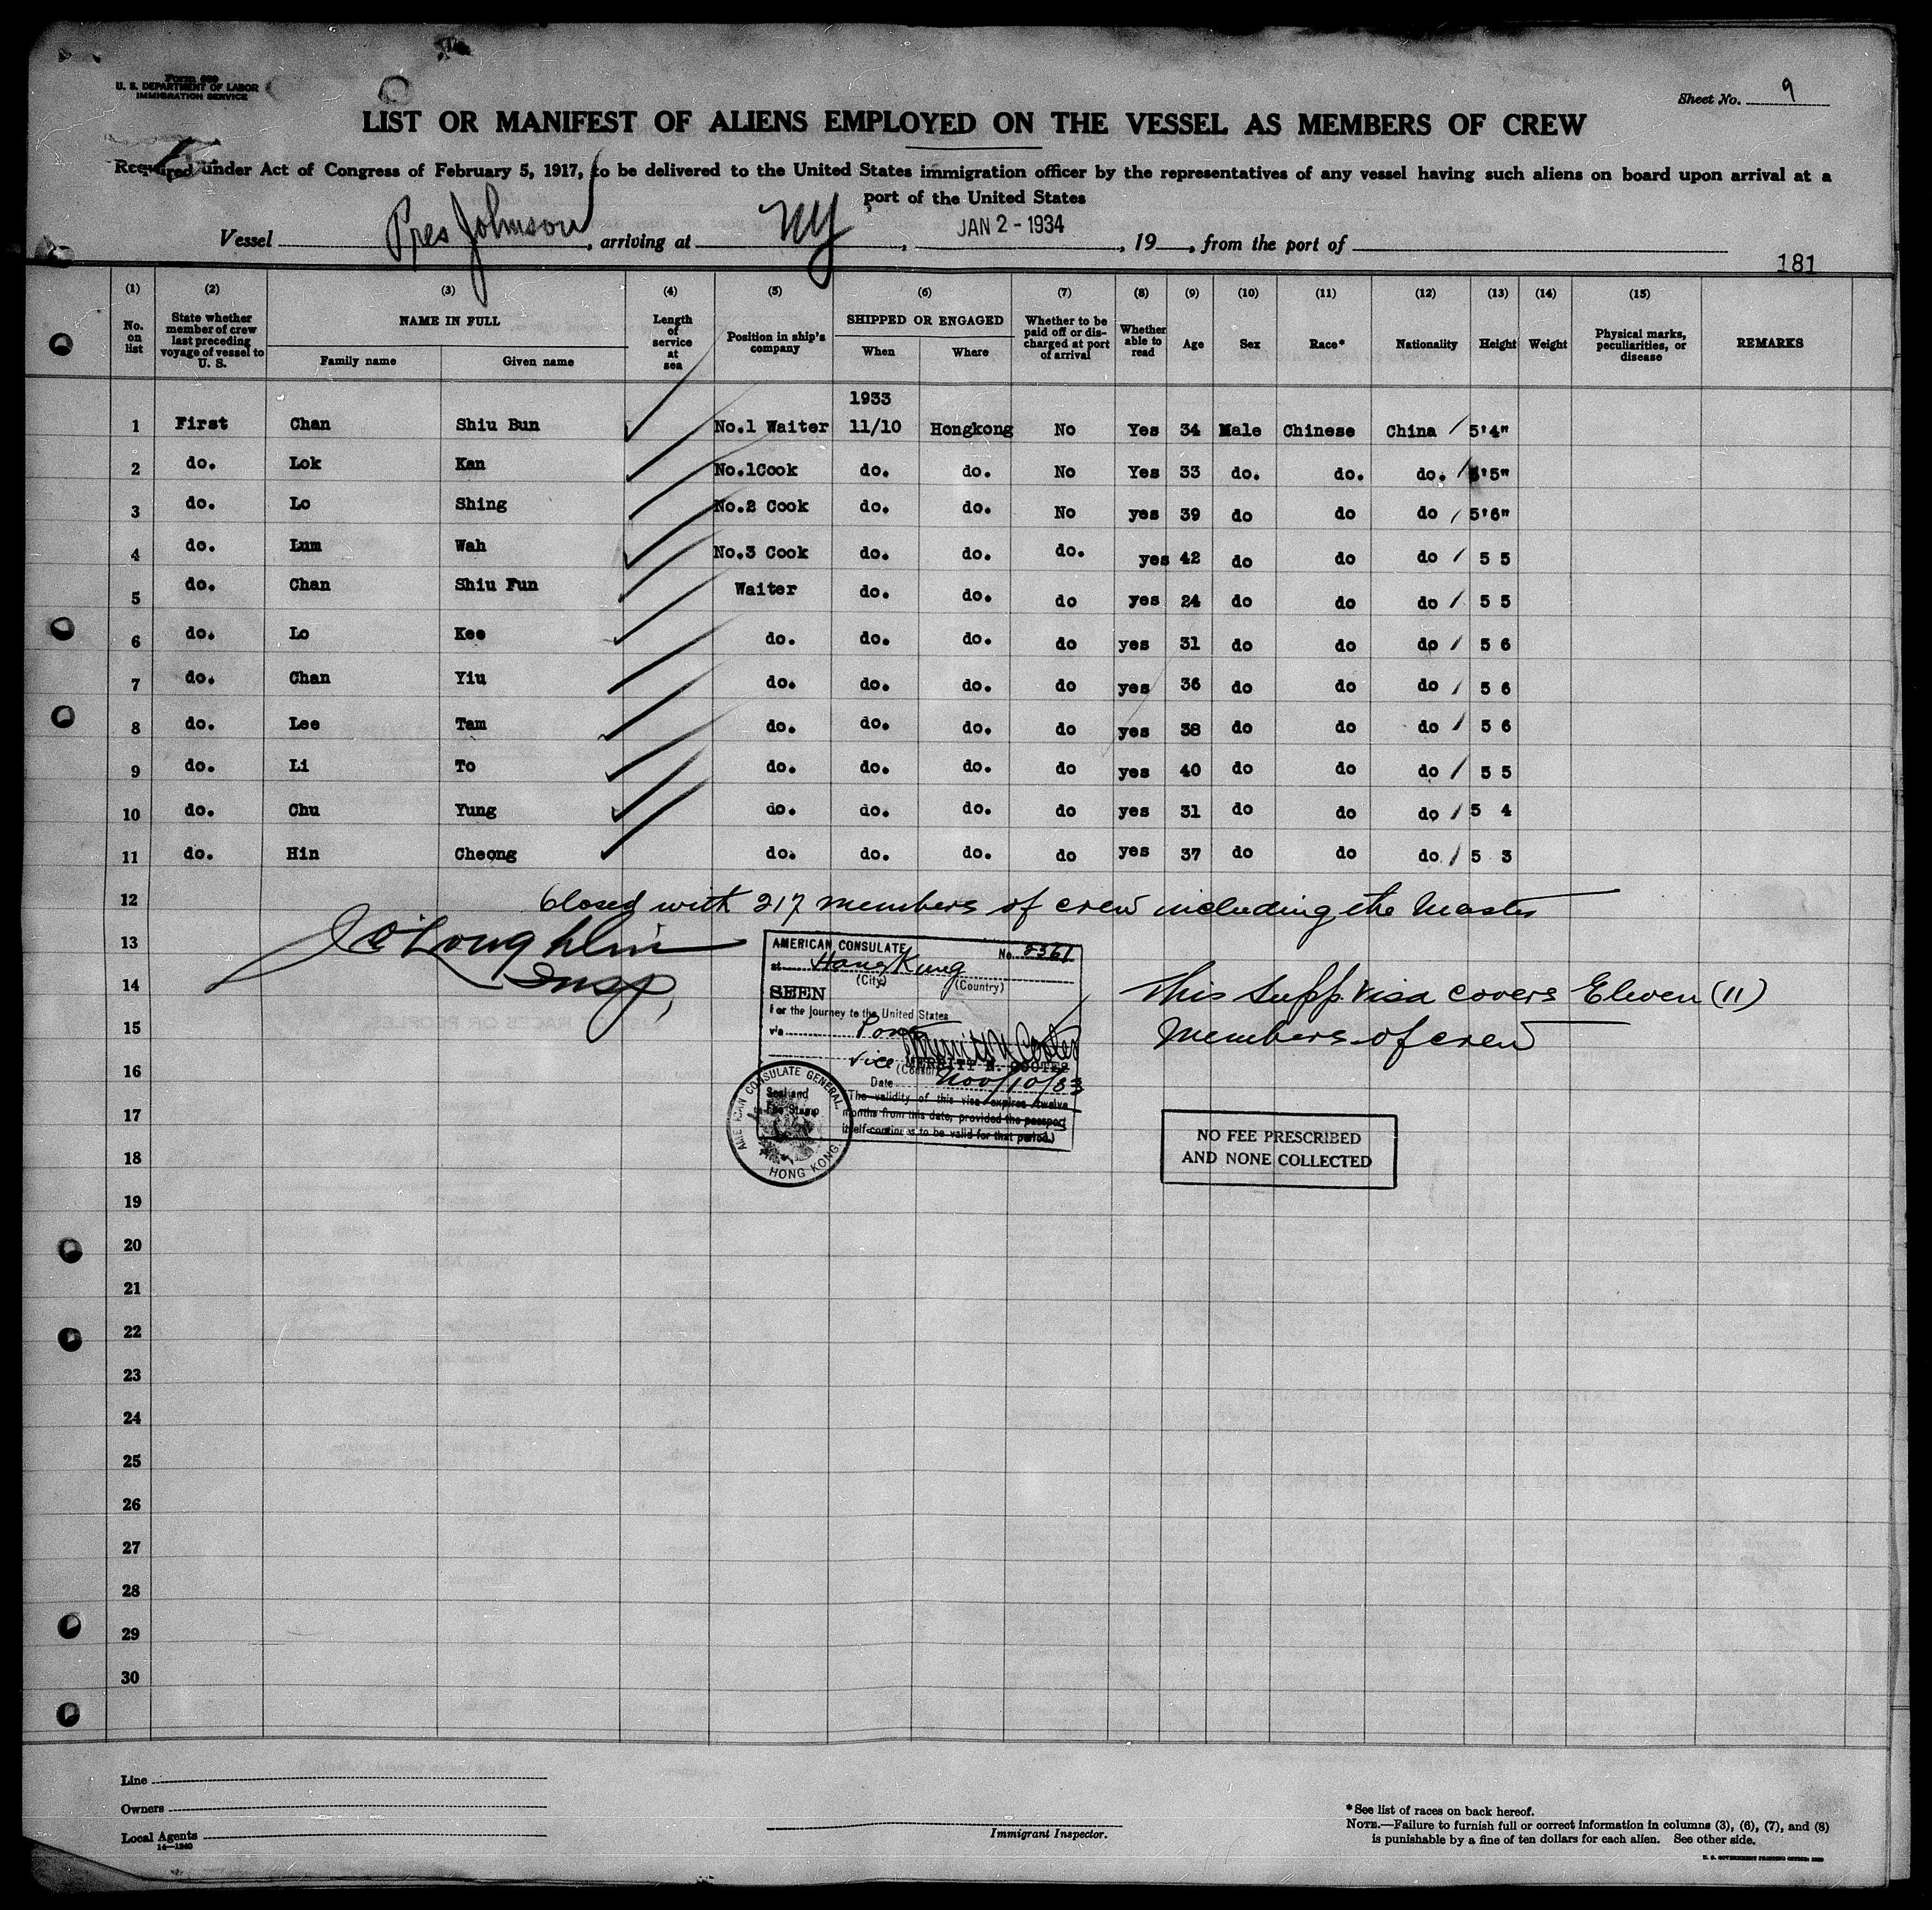 Form 689
U. S. DEPARTMENT OF LABOR
IMMIGRATION SERVICE
Sheet No. 9
LIST OR MANIFEST OF ALIENS EMPLOYED ON THE VESSEL AS MEMBERS OF CREW
Required under Act of Congress of February 5, 1917, to be delivered to the United States immigration officer by the representatives of any vessel having such aliens on board upon arrival at a
port of the United States
Vessel Pres Johnson, arriving at NY, JAN 2 - 1934, 19, from the port of
181
(1) (2) (3) (4) (5) (6) (7) (8) (9) (10) (11) (12) (13) (14) (15)
No. on list State whether member of crew last preceding voyage of vessel to U. S. NAME IN FULL Family name Given name Length of service at sea Position in ship's company SHIPPED OR ENGAGED When Where Whether to be paid off or discharged at port of arrival Whether able to read Age Sex Race* Nationality Height Weight Physical marks, peculiarities, or disease REMARKS
1933
1 First Chan Shiu Bun No.1 Waiter 11/10 Hongkong No Yes 34 Male Chinese China / 5'4"
2 do. Lok Kan No.1Cook do. do. No Yes 33 do. do. do. / 5'5"
3 do. Lo Shing No.2 Cook do. do. No yes 39 do do do / 5'6"
4 do. Lum Wah No.3 Cook do. do. do. yes 42 do do do / 5 5
5 do. Chan Shiu Fun Waiter do. do. do yes 24 do do do / 5 5
6 do. Lo Kee do. do. do. do yes 31 do do do / 5 6
7 do. Chan Yiu do. do. do. do yes 36 do do do / 5 6
8 do. Lee Tam do. do. do. do yes 38 do do do / 5 6
9 do. Li To do. do. do. do yes 40 do do do / 5 5
10 do. Chu Yung do. do. do. do yes 31 do do do / 5 4
11 do. Hin Cheong do. do. do. do yes 37 do do do. / 5 3
12 Closed with 217 members of crew including the Master
13 J O'Loughlin
14 Insp,
15
16
17
18
19
20
21
22
23
24
25
26
27
28
29
30
AMERICAN CONSULATE No. 5361
at Hong Kong
(City) (Country)
SEEN
For the journey to the United States
via
Vice MERRITT N. COOTES
(Consul)
Date Nov/10/33
The validity of this visa expires twelve
months from this date, provided the passport
itself continues to be valid for that period.)
Seal and
Fee Stamp
AMERICAN CONSULATE GENERAL.
HONG KONG.
This Supp. Visa covers Eleven (11)
Members of crew
NO FEE PRESCRIBED
AND NONE COLLECTED
Line
Owners
Local Agents
14—1240
Immigrant Inspector.
*See list of races on back hereof.
NOTE.—Failure to furnish full or correct information in columns (3), (6), (7), and (8)
is punishable by a fine of ten dollars for each alien. See other side.